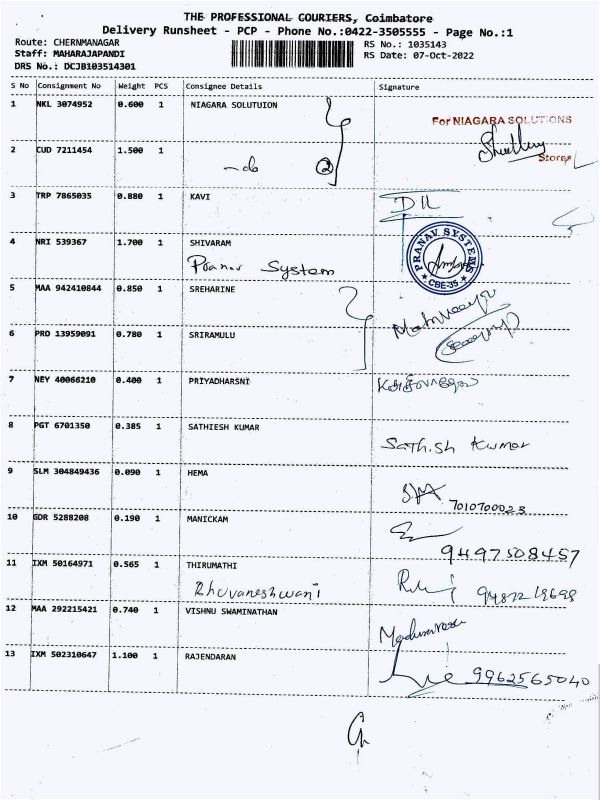 THE PROFESSIONAL COURIERS, Coimbatore
Delivery Runsheet - PCP - Phone No.:0422-3505555 - Page No.:1
Route: CHERNMANAGAR RS No.: 1035143
Staff: MAHARAJAPANDI RS Date: 07-Oct-2022
DRS No.: DCJB103514301
S No Consignment No Weight PCS Consignee Details Signature
1 NKL 3074952 0.600 1 NIAGARA SOLUTUION
For NIAGARA SOLUTIONS
2 CUD 7211454 1.500 1
Stores
-do 2
3 TRP 7865035 0.880 1 KAVI
4 NRI 539367 1.700 1 SHIVARAM
Pranav System
PRANAV SYSTEMS
CBE-35
5 MAA 942410844 0.850 1 SREHARINE
6 PRO 13959091 0.780 1 SRIRAMULU
7 NEY 40066210 0.400 1 PRIYADHARSNI
8 PGT 6701350 0.385 1 SATHIESH KUMAR
Sathish Kumar
9 SLM 304849436 0.090 1 HEMA
7010700023
10 GDR 5288208 0.190 1 MANICKAM
9497508457
11 IXM 50164971 0.565 1 THIRUMATHI
Bhuvaneshwari
12 MAA 292215421 0.740 1 VISHNU SWAMINATHAN
13 IXM 502310647 1.100 1 RAJENDARAN
9962565040